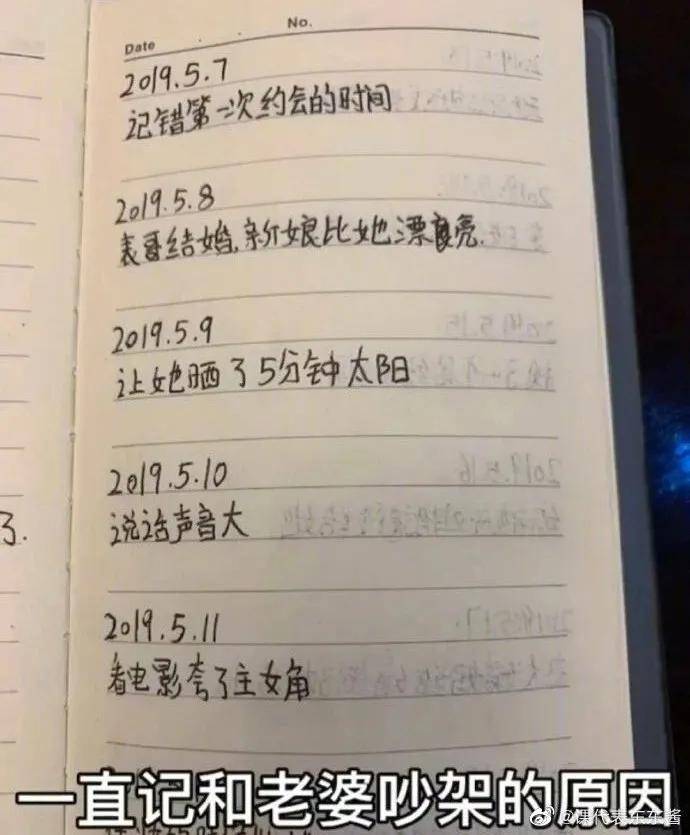 No.
Date
2019.5.7
记错第一次约会的时间
2019.5.8
表哥结婚,新娘比她漂亮.
2019.5.9
让她晒了5分钟太阳
2019.5.10
说话声音大
2019.5.11
看电影夸了主女角
了.
一直记和老婆吵架的原因
@课代表东东酱